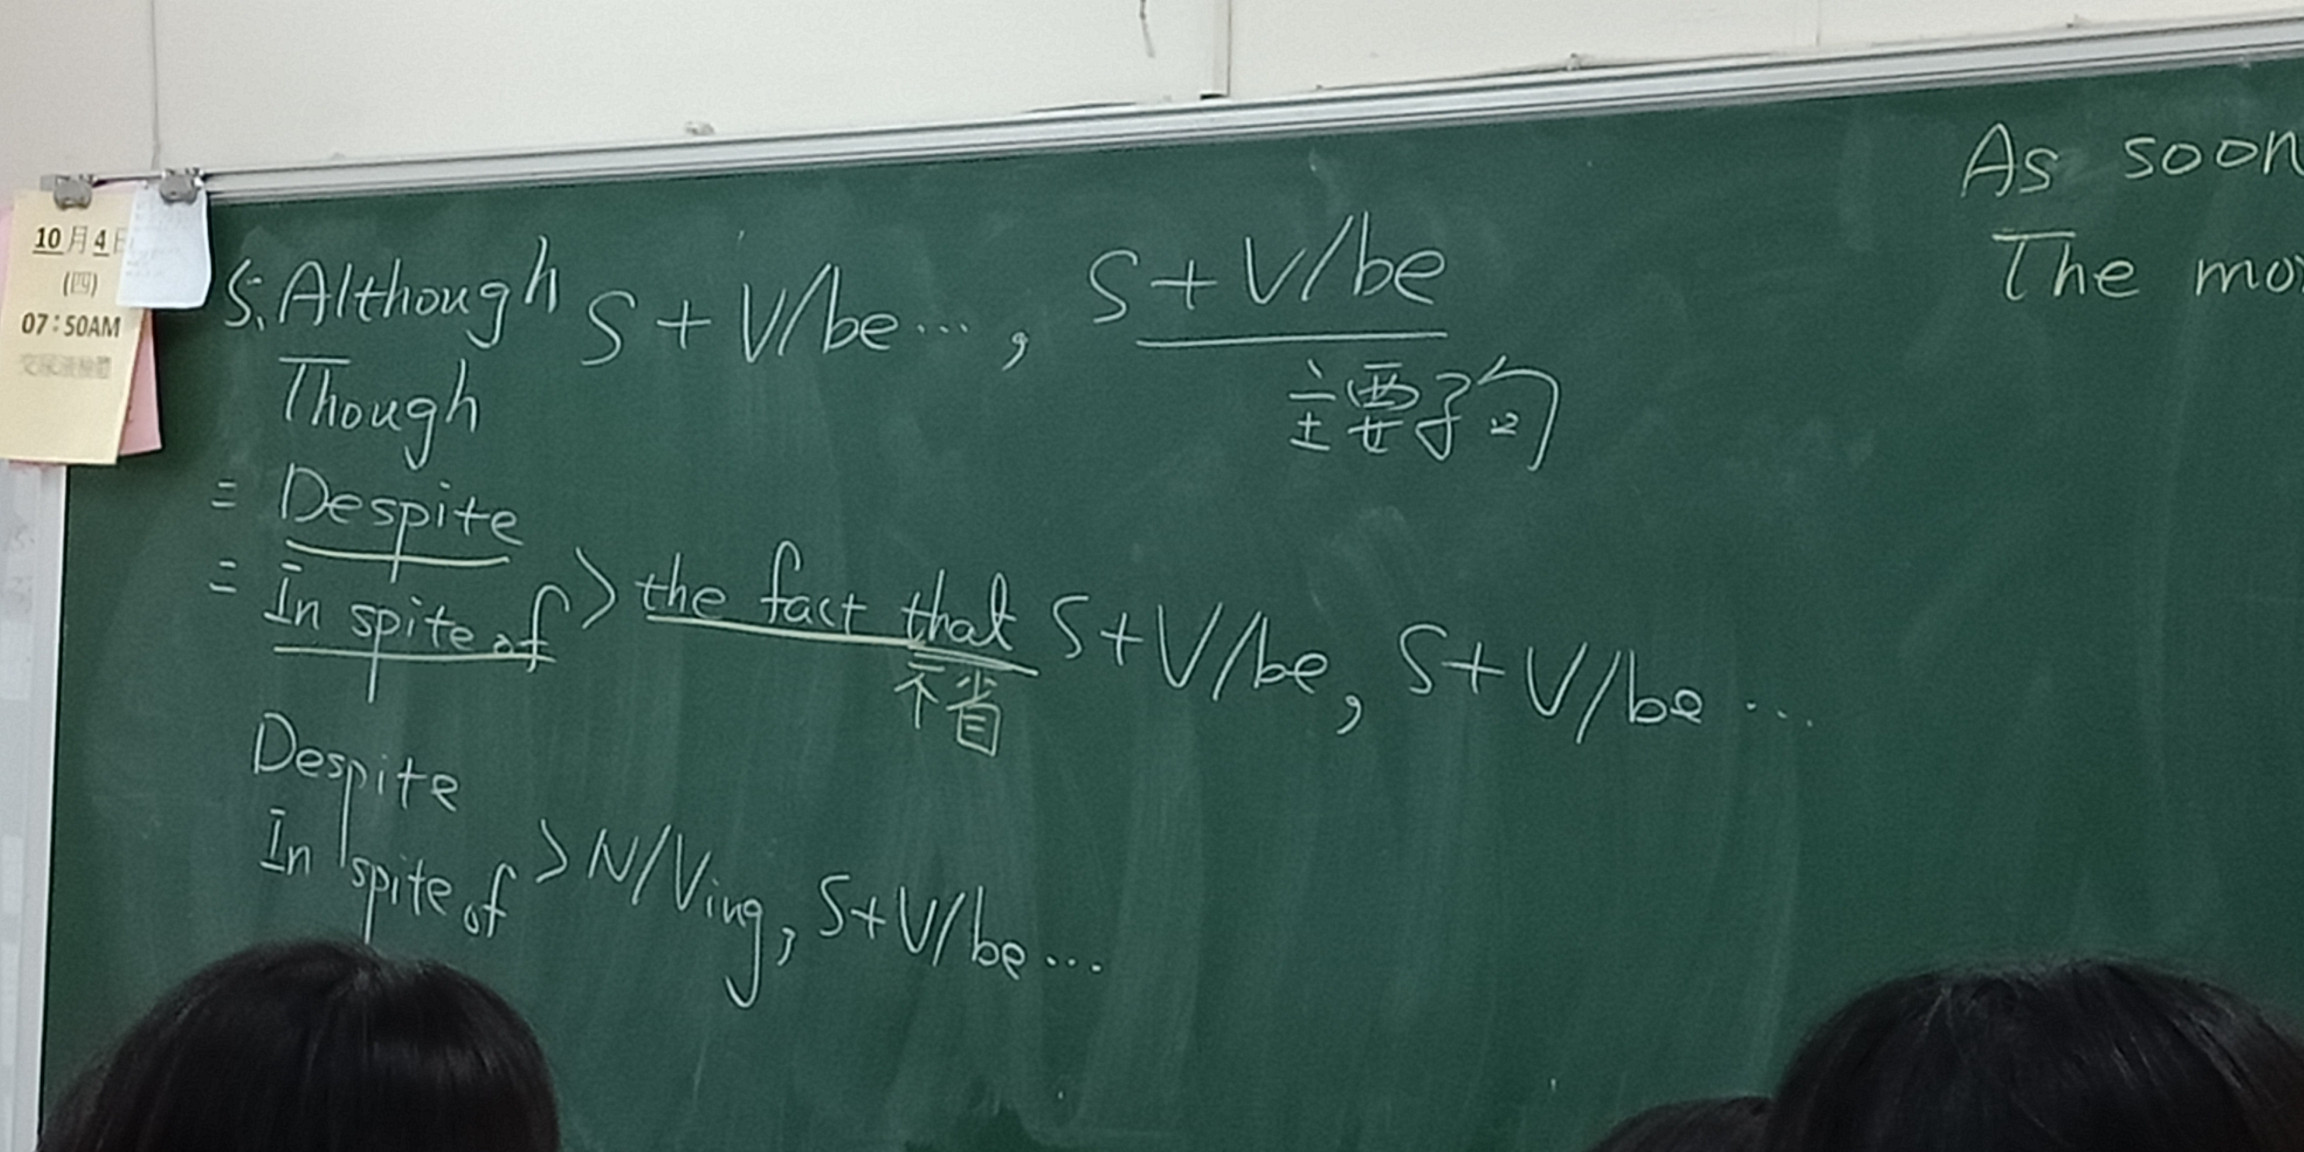 10月4日
(四)
07:50AM
5. Although S + V/be…, S + V/be
Though
主要子句
= Despite
= In spite of > the fact that S + V/be, S + V/be…
不省
Despite
In spite of > N/Ving, S + V/be…
As soon
The mo